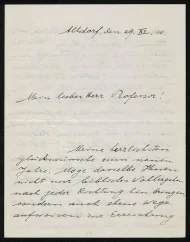 Altdorf, den 29. XII. 10.
Mein lieber Herr Professor!
Meine herzlichsten
Glückwünsche zum neuen
Jahre. Möge dasselbe Ihnen
nicht nur
nach jeder Richtung hin bringen,
sondern auch ebene Wege
zur Erreichung